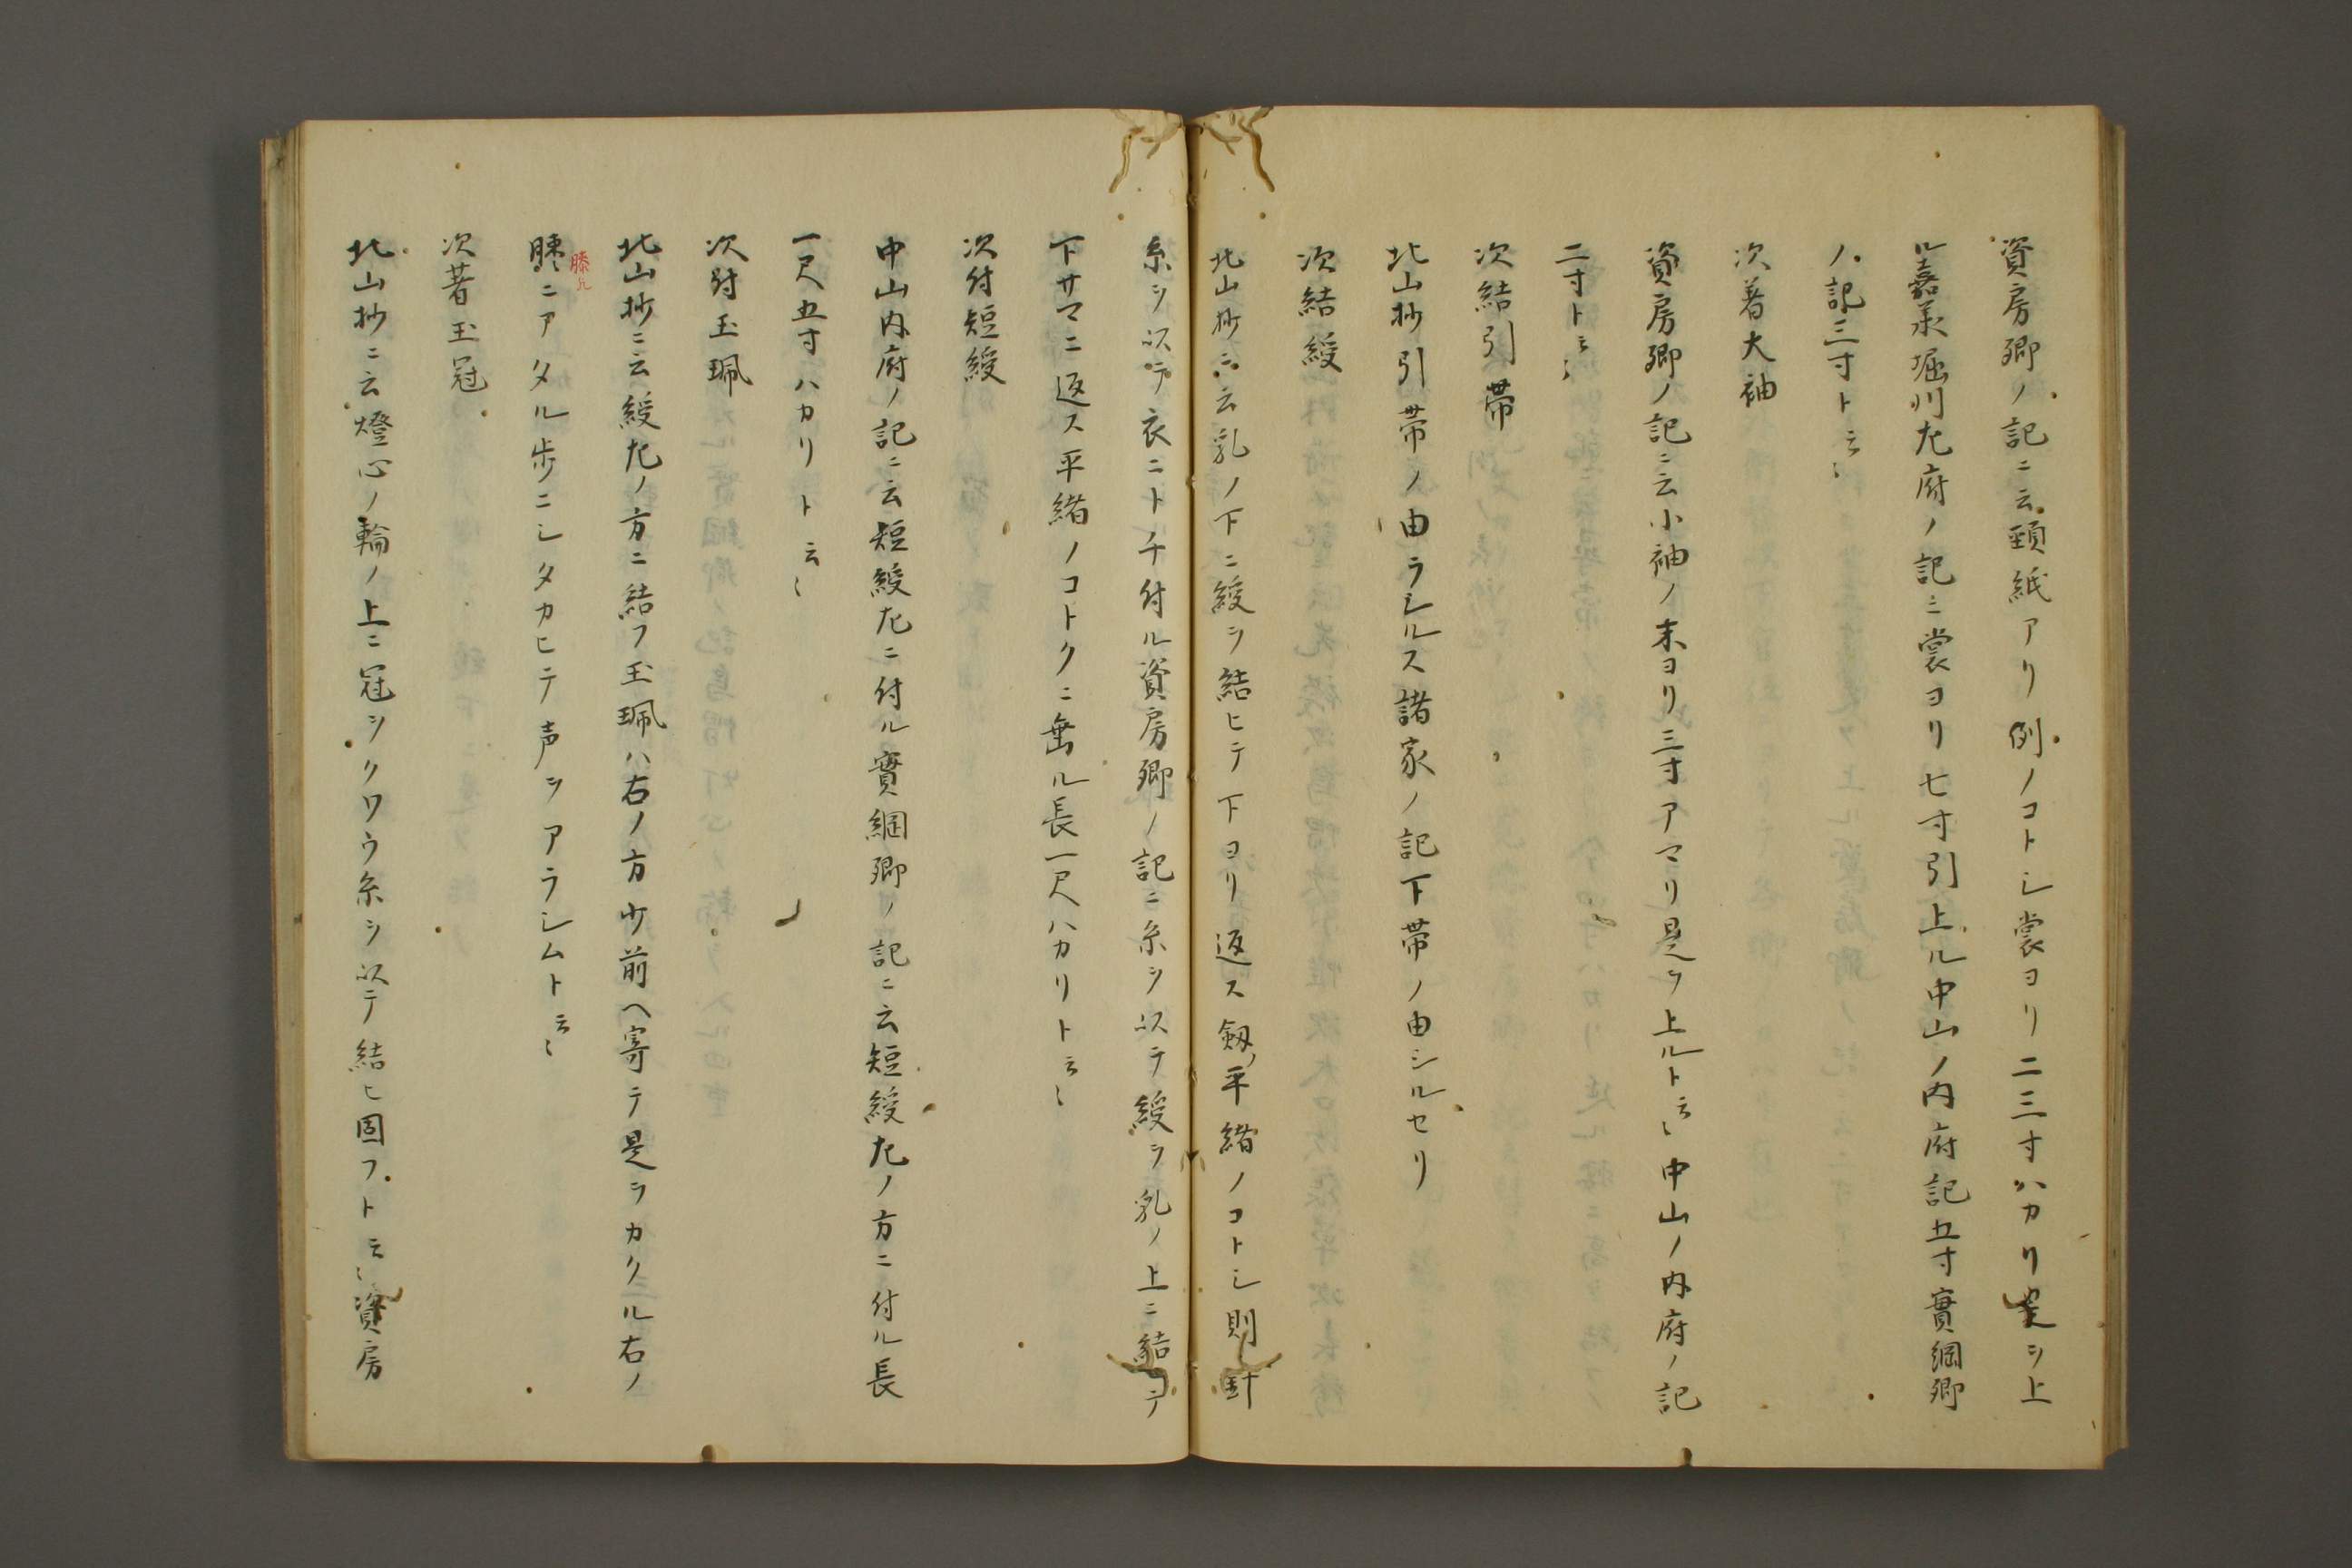 資房卿ノ記ニ云頸紙アリ例ノコトシ裳ヨリ二三寸ハカリ是ヲ上
ル嘉承堀川左府ノ記ニ裳ヨリ七寸引上ル中山ノ内府記五寸實綱卿
ノ記三寸ト云〻
次著大袖
資房卿ノ記ニ云小袖ノ末ヨリ三寸アマリ是ヲ上ルト云〻中山ノ内府ノ記
二寸ト云〻
次結引帯
北山抄引帯ノ由ヲシルス諸家ノ記下帯ノ由シルセリ
次結綬
北山抄ニ云乳ノ下ニ綬ヲ結ヒテ下ヨリ返ス釼ノ平緒ノコトシ則針
糸ヲ以テ衣ニトチ付ル資房卿ノ記ニ糸ヲ以テ綬ヲ乳ノ上ニ結テ
下サマニ返ス平緒ノコトクニ垂ル長一尺ハカリト云〻
次付短綬
中山内府ノ記ニ云短綬左ニ付ル實綱卿ノ記ニ云短綬左ノ方ニ付ル長
一尺五寸ハカリト云〻
次付玉珮
北山抄ニ云綬左ノ方ニ結フ玉珮ハ右ノ方少前ヘ寄テ是ヲカクル右ノ
膝ニアタル歩ニシタカヒテ声ヲアラシムト云〻
次著玉冠
北山抄ニ云燈心ノ輪ノ上ニ冠ヲクワウ糸ヲ以テ結ヒ固フト云〻資房